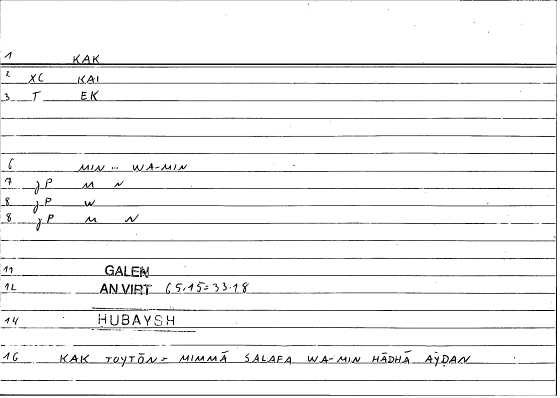 1 KAK
2 XC KAI
3 T EK
6 MIN ... WA-MIN
7 JP M N
8 JP W
8 JP M N
11 GALEN
12 AN VIRT 65,15=33.18
14 HUBAYSH
16 KAK TOYTŌN = MIMMĀ SALAFA WA-MIN HĀDHĀ AYḌAN